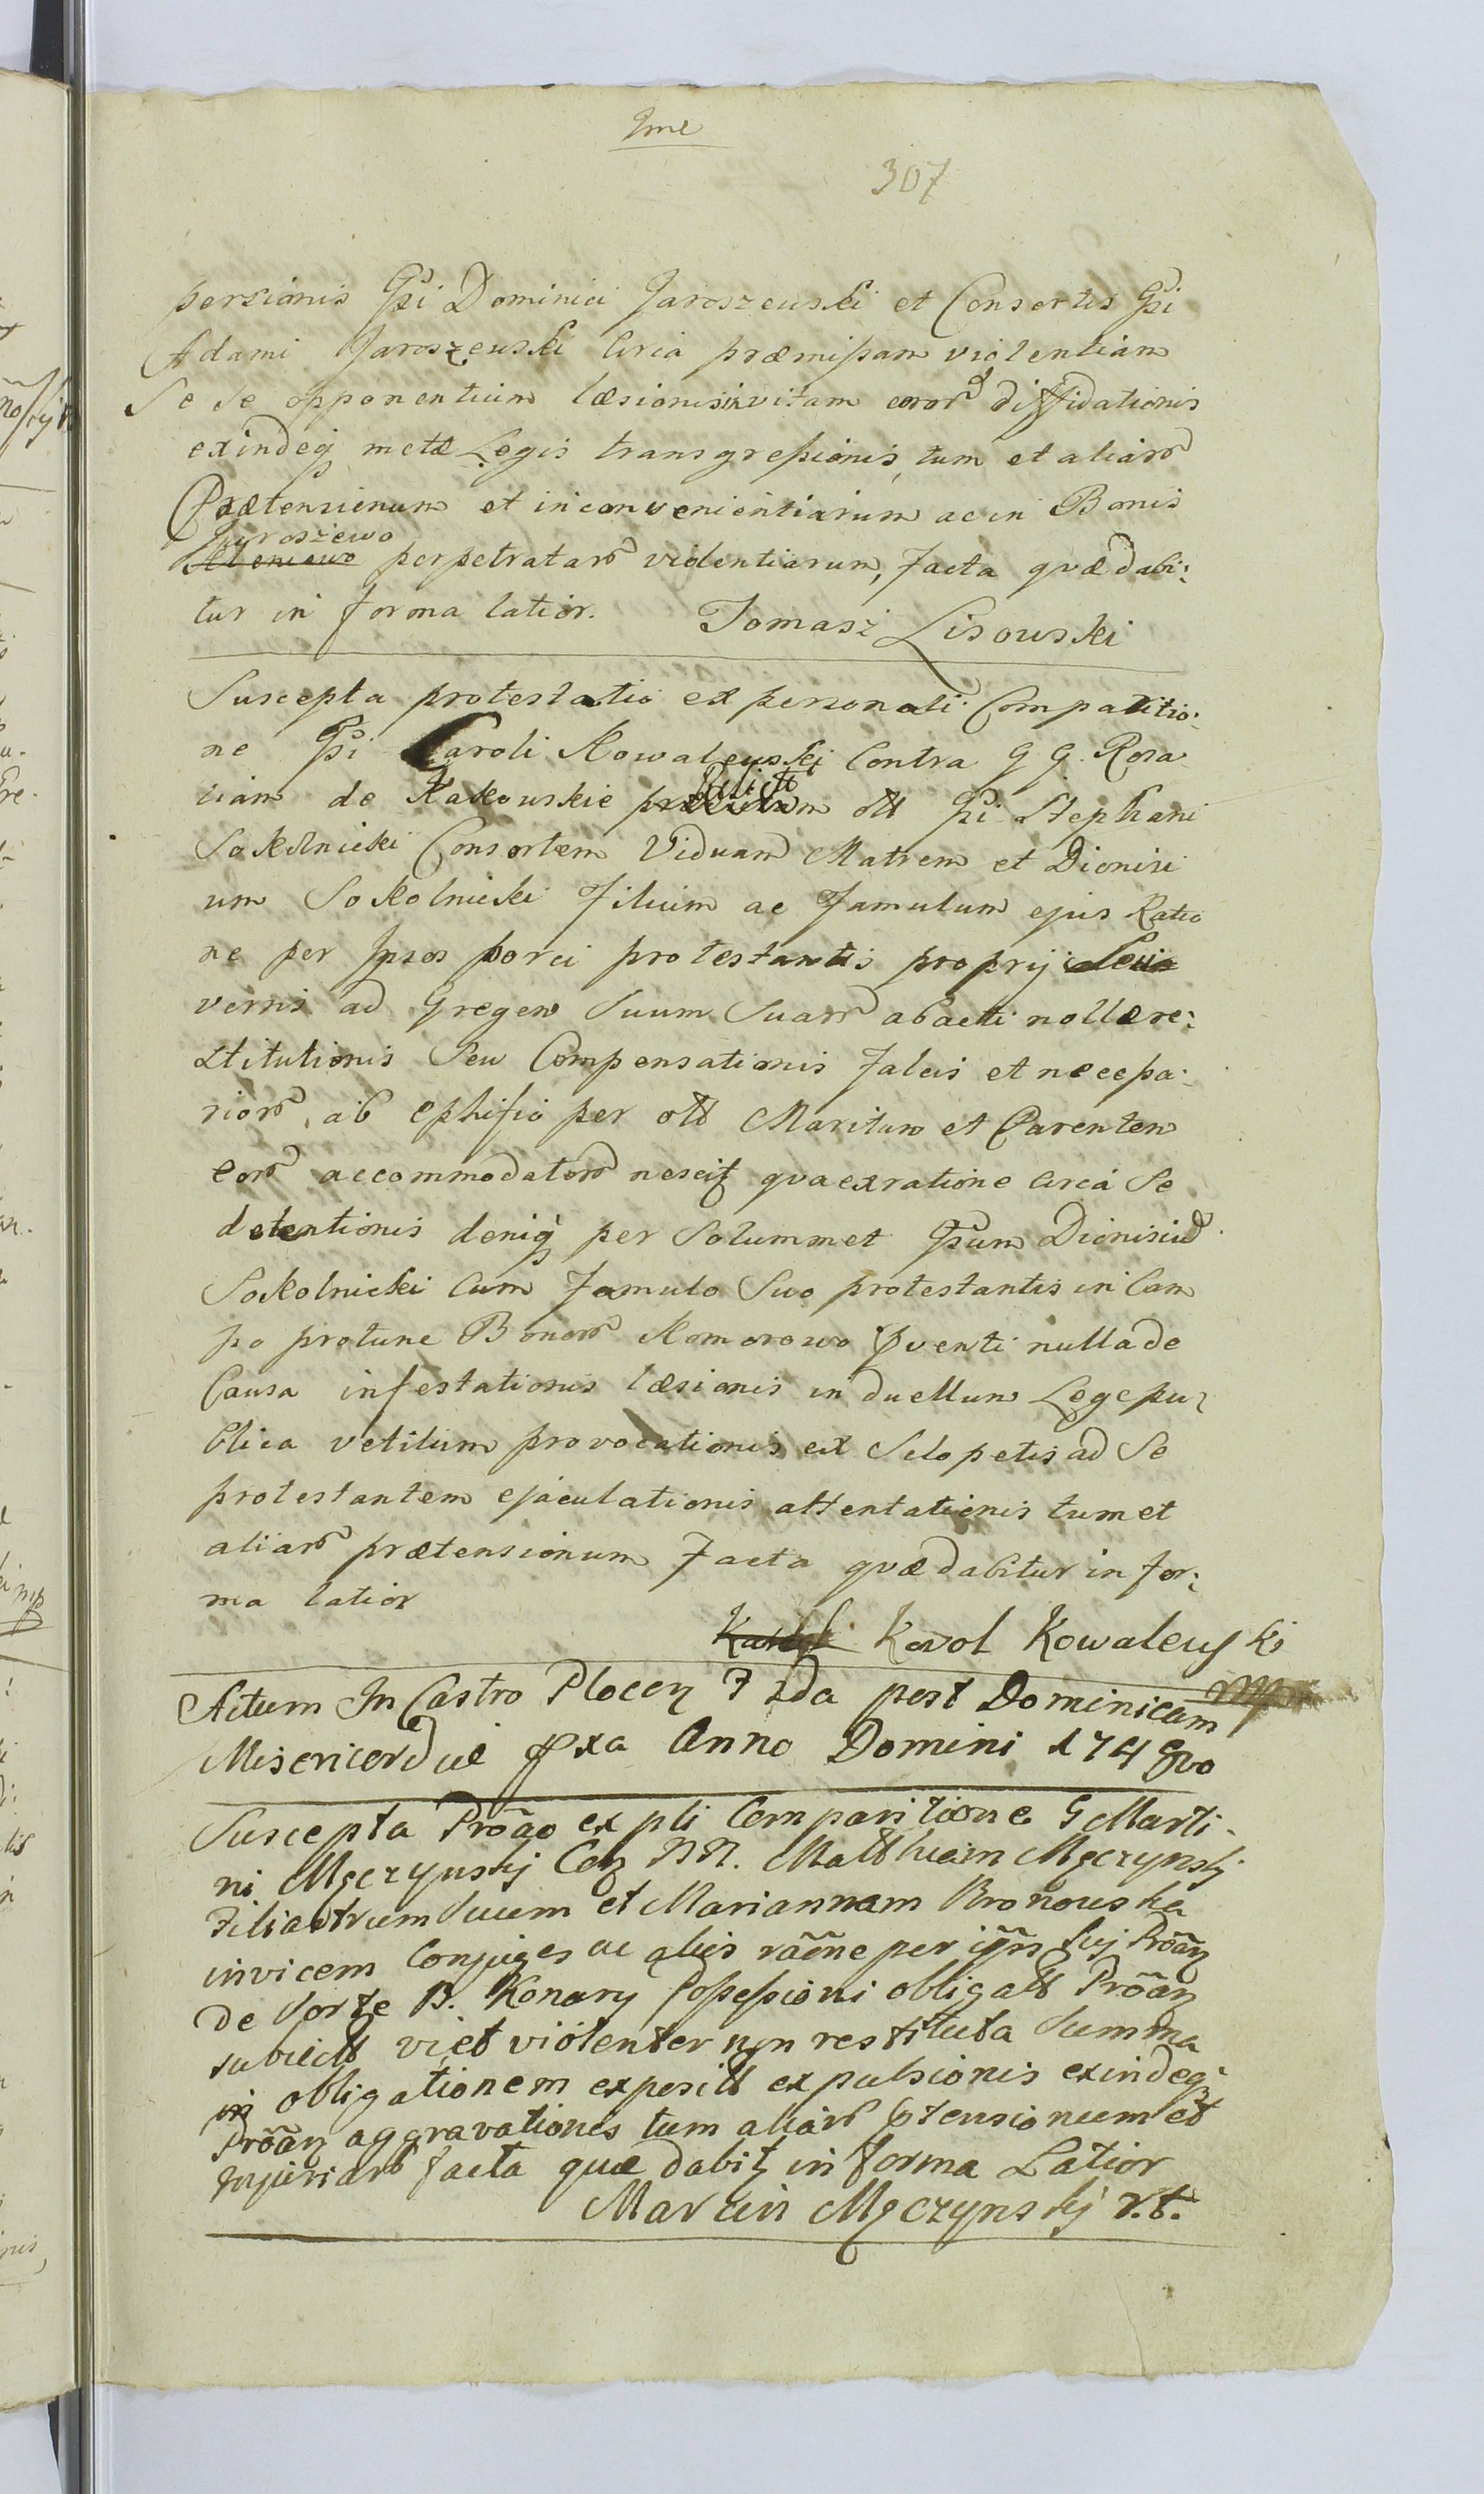 307
persionis Gsi Dominici Jaroszewski et Consortis Gsi
Adami Jaroszewski circa præmissam violentiam
Se se opponentium læsionis in vitam eoror diffidationis
exindeq metæ Legis transgressionis, tum et aliarr
Prætensionum et inconvenientiarum ac in Bonis
Jaroszewo
perpetratarr violentiarum, facta quæ dabi:
tur in forma latior. Tomasz Lisowski
Suscepta protestatio ex personali Comparitio:
ne Gsi Caroli Kowalewski Contra G G. Rosa
liam de Kakowskie Relictt olt Gsi Stephani
Sokolnicki Consortem Viduam Matrem et Dionisi
um Sokolnicki Filium ac Famulum ejus Ratio
ne per Ipsos porci protestantis proprij
versis ad Gregem Suum Suarr abacti nollæ re:
stitutionis Seu Compensationis Falcis et necessa:
riorr ab ephipio per olt Maritum et Parentem
eorr accommodatorr nescit qua ex ratione circa Se
detentionis deniq per Solummet Gsum Dionisiu
Sokolnicki cum Famulo Suo protestantis in Cam
po protunc Bonorr Komorowo pventi nulla de
Causa infestationis læsionis in duellum Lege pu
blica vetitum provocationis ex Sclopetis ad Se
protestantem ejaculationis attentationis tum et
aliarr prætensionum Facta quæ dabitur in for:
ma latior
Karol Kowalewski
mp
Actum In Castro Plocen F 2da post Dominicam
Misericordiæ pxa Anno Domini 174
Suscepta Prõão ex pli Comparitione G Marti-
ni Męczynskj Con NN. Matthæum Męczynskj
Filiastrum Suum et Mariannam Bronowska
invicem Conjuges ac alijs rãõne per ipsos Suj Prõãn
de Sorte B. Konary Possessioni obligatt Prõãn
subiectt vi et violenter non restituta Summa
in obligationem expositt expulsionis exindeq
Prõãn aggravationis tum aliarr ptensionum et
Injuriarr facta quæ dabit in forma Latior
Marcin Męczynskj